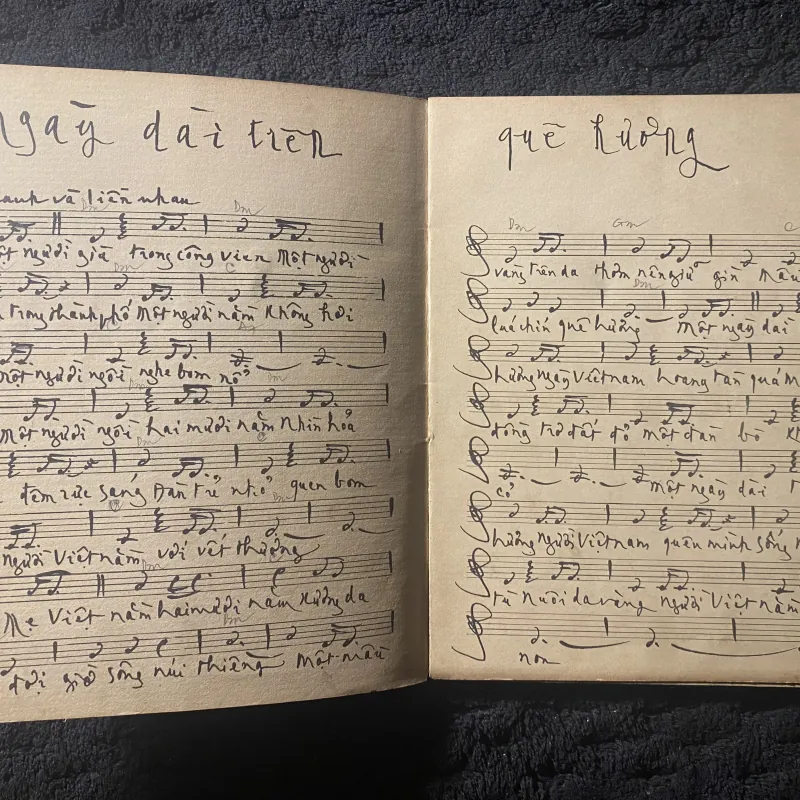 ngày dài trên
anh và liên nhau
Dm Dm
ột người già trong công viên Một người
Dm C
trong thành phố Một người nằm không hơi
Một người ngồi nghe bom nổ
Dm
Một người ngồi hai mươi năm nhìn hỏa
Dm
đêm rực sáng Đàn trẻ nhỏ quen bom
Dm
người Việt nằm với vết thương
Mẹ Việt nằm hai mươi năm xương da
Dm
đợi giờ sông núi thiêng Một màu
quê hương
Dm Gm C
vàng trên da thơm nên giữ gìn Màu
Dm
lúa chín quê hương Một ngày dài
hương ngày Việt nam hoang tàn quá M
đồng trơ đất đỏ một đàn bò
cỏ Một ngày dài
hương người Việt nam quên mình sống
từ nuôi da vàng người Việt nằm
non